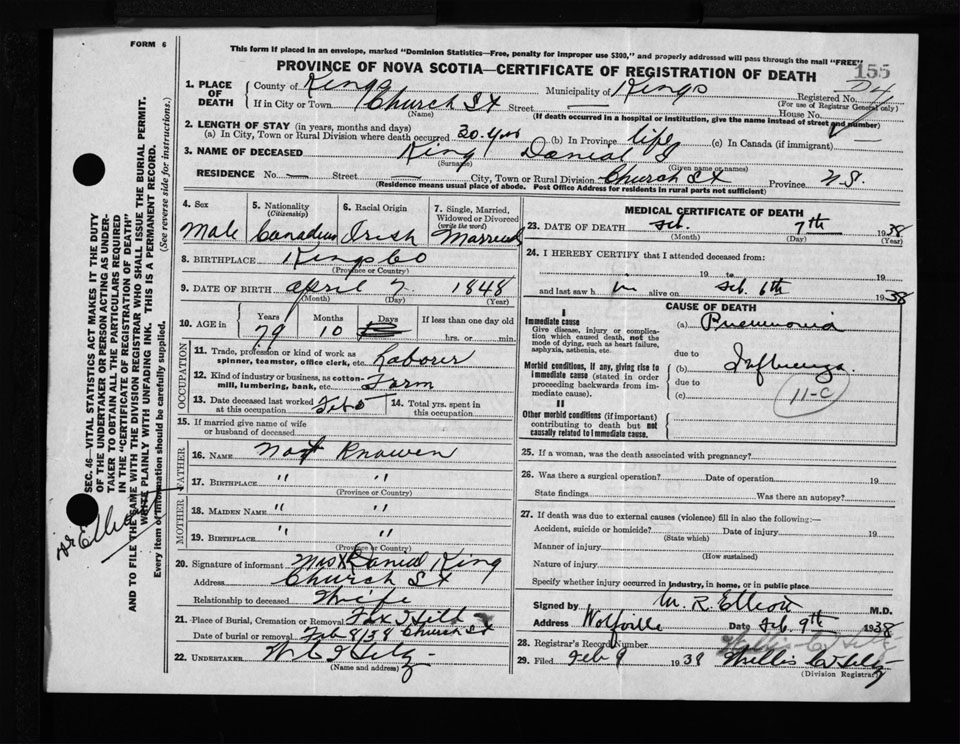 FORM 6
This form if placed in an envelope, marked "Dominion Statistics—Free, penalty for improper use $300," and properly addressed will pass through the mail "FREE"
PROVINCE OF NOVA SCOTIA—CERTIFICATE OF REGISTRATION OF DEATH
155
1. PLACE OF DEATH
County of Kings Municipality of Kings Registered No.
(For use of Registrar General only)
If in City or Town Church St Street — House No.
(Name) (If death occurred in a hospital or institution, give the name instead of street and number)
2. LENGTH OF STAY (in years, months and days)
(a) In City, Town or Rural Division where death occurred 30 yrs (b) In Province life (c) In Canada (if immigrant) —
3. NAME OF DECEASED King Danial
(Surname) (Given name or names)
RESIDENCE No. — Street — City, Town or Rural Division Church St Province N.S.
(Residence means usual place of abode. Post Office Address for residents in rural parts not sufficient)
4. Sex
Male
5. Nationality (Citizenship)
Canadian
6. Racial Origin
Irish
7. Single, Married, Widowed or Divorced (write the word)
Married
8. BIRTHPLACE Kings Co
(Province or Country)
9. DATE OF BIRTH April 7 1848
(Month) (Day) (Year)
10. AGE in Years Months Days If less than one day old
79 10 hrs. or min.
OCCUPATION
11. Trade, profession or kind of work as spinner, teamster, office clerk, etc. Laborer
12. Kind of industry or business, as cotton-mill, lumbering, bank, etc. Farm
13. Date deceased last worked at this occupation
14. Total yrs. spent in this occupation
15. If married give name of wife or husband of deceased
FATHER
16. NAME Not Knowen
17. BIRTHPLACE " "
(Province or Country)
MOTHER
18. MAIDEN NAME " "
19. BIRTHPLACE " "
(Province or Country)
20. Signature of informant Mrs Danial King
Address Church St
Relationship to deceased Wife
21. Place of Burial, Cremation or Removal Fox Hill
Date of burial or removal Feb 8/38 Church St
22. UNDERTAKER
(Name and address)
MEDICAL CERTIFICATE OF DEATH
23. DATE OF DEATH Feb. 7th 1938
(Month) (Day) (Year)
24. I HEREBY CERTIFY that I attended deceased from:
19 to 19
and last saw h im alive on Feb. 6th 1938
CAUSE OF DEATH
I
Immediate cause
Give disease, injury or complication which caused death, not the mode of dying, such as heart failure, asphyxia, asthenia, etc.
(a) Pneumonia
due to
Morbid conditions, if any, giving rise to immediate cause (stated in order proceeding backwards from immediate cause).
(b) Influenza.
due to
(c)
11-C
II
Other morbid conditions (if important) contributing to death but not causally related to immediate cause.
25. If a woman, was the death associated with pregnancy?
26. Was there a surgical operation? Date of operation 19
State findings Was there an autopsy?
27. If death was due to external causes (violence) fill in also the following:
Accident, suicide or homicide? Date of injury 19
(State which)
Manner of injury
(How sustained)
Nature of injury
Specify whether injury occurred in industry, in home, or in public place
Signed by M. R. Elliott M.D.
Address Wolfville Date Feb. 9th 1938
28. Registrar's Record Number
29. Filed Feb 9 1938 Willis
(Division Registrar)
SEC. 46—VITAL STATISTICS ACT MAKES IT THE DUTY
OF THE UNDERTAKER OR PERSON ACTING AS UNDER-
TAKER TO OBTAIN ALL THE PARTICULARS REQUIRED
IN THE "CERTIFICATE OF REGISTRATION OF DEATH"
AND TO FILE THE SAME WITH THE DIVISION REGISTRAR WHO SHALL ISSUE THE BURIAL PERMIT.
WRITE PLAINLY WITH UNFADING INK. THIS IS A PERMANENT RECORD.
Every item of information should be carefully supplied.
(See reverse side for instructions.)
Dr Elliott